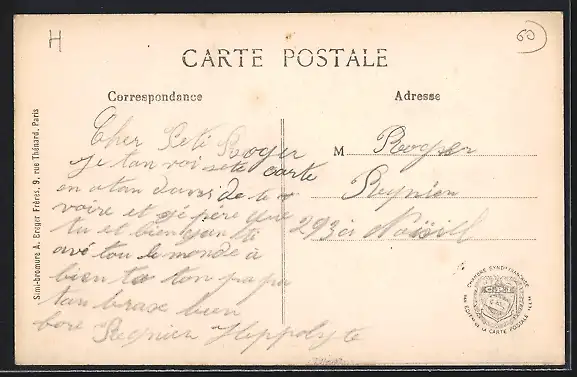 H
60
CARTE POSTALE
Correspondance
Adresse
Cher Peti Roger
je tan voi sete carte
en atan dans de te
voire et jé père que
tu et bien janti
avé tou le monde à
bien to ton papa
tan brase bien
Regnier Hippolyte
M Roger
Regnier
293
Simi-bromure A. Breger Frères, 9, rue Thénard, Paris
CHAMBRE SYNDICALE FRANÇAISE
DES EDITEURS DE LA CARTE POSTALE ILL.